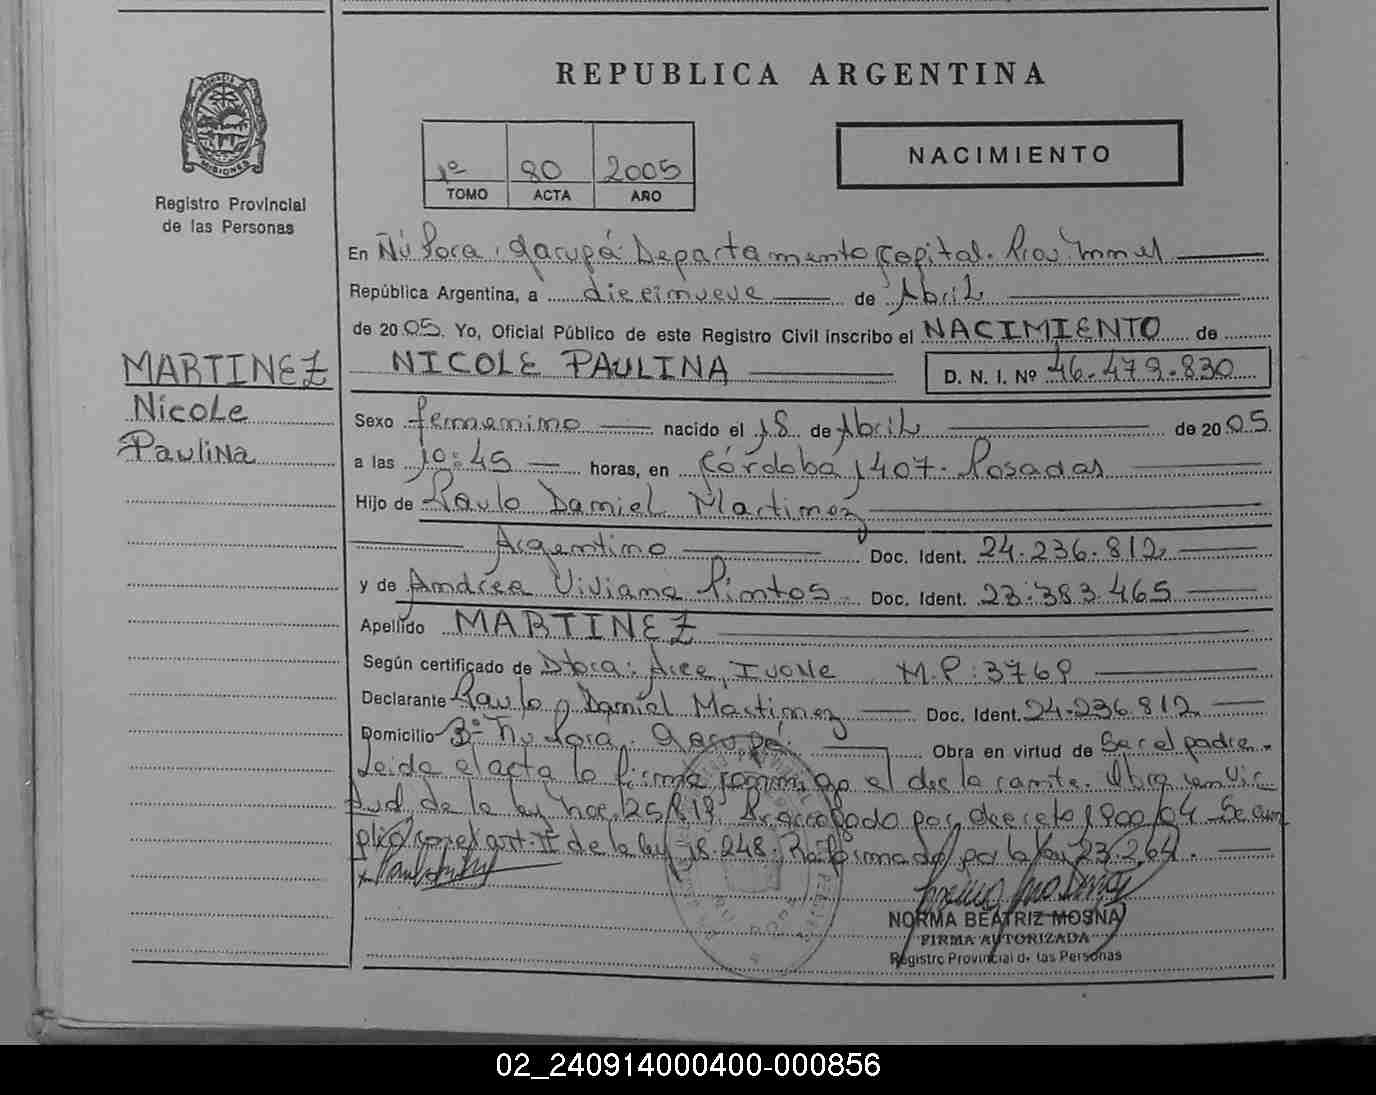 REPUBLICA ARGENTINA
PROVINCIA DE
MISIONES
Registro Provincial
de las Personas
1º 80 2005
TOMO ACTA AÑO
NACIMIENTO
En Ñu Pora, Garupá Departamento Capital. Prov. Mnes
República Argentina, a diecinueve de Abril
de 2005. Yo, Oficial Público de este Registro Civil inscribo el NACIMIENTO de
NICOLE PAULINA D. N. I. Nº 46.479.830
MARTINEZ
Nicole
Paulina
Sexo femenino nacido el 18 de Abril de 2005
a las 10:45 horas, en Córdoba 1407. Posadas
Hijo de Paulo Daniel Martinez
Argentino Doc. Ident. 24.236.812
y de Andrea Viviana Pintos Doc. Ident. 23.383.465
Apellido MARTINEZ
Según certificado de Dtora: Arce, Ivone M.P: 3769
Declarante Paulo Daniel Martinez Doc. Ident. 24.236.812
Domicilio Bº Ñu Pora. Garupá. Obra en virtud de Ser el padre.
Leida el acta la firma conmigo el declarante. Obra en vir
tud de la ley nac. 25.819. Prorrogado por decreto 1900/04 Se am
plió con el art. II de la ley 18.248. Reformado por la ley 23.264.
NORMA BEATRIZ MOSNA
FIRMA AUTORIZADA
Registro Provincial de las Personas
02_240914000400-000856